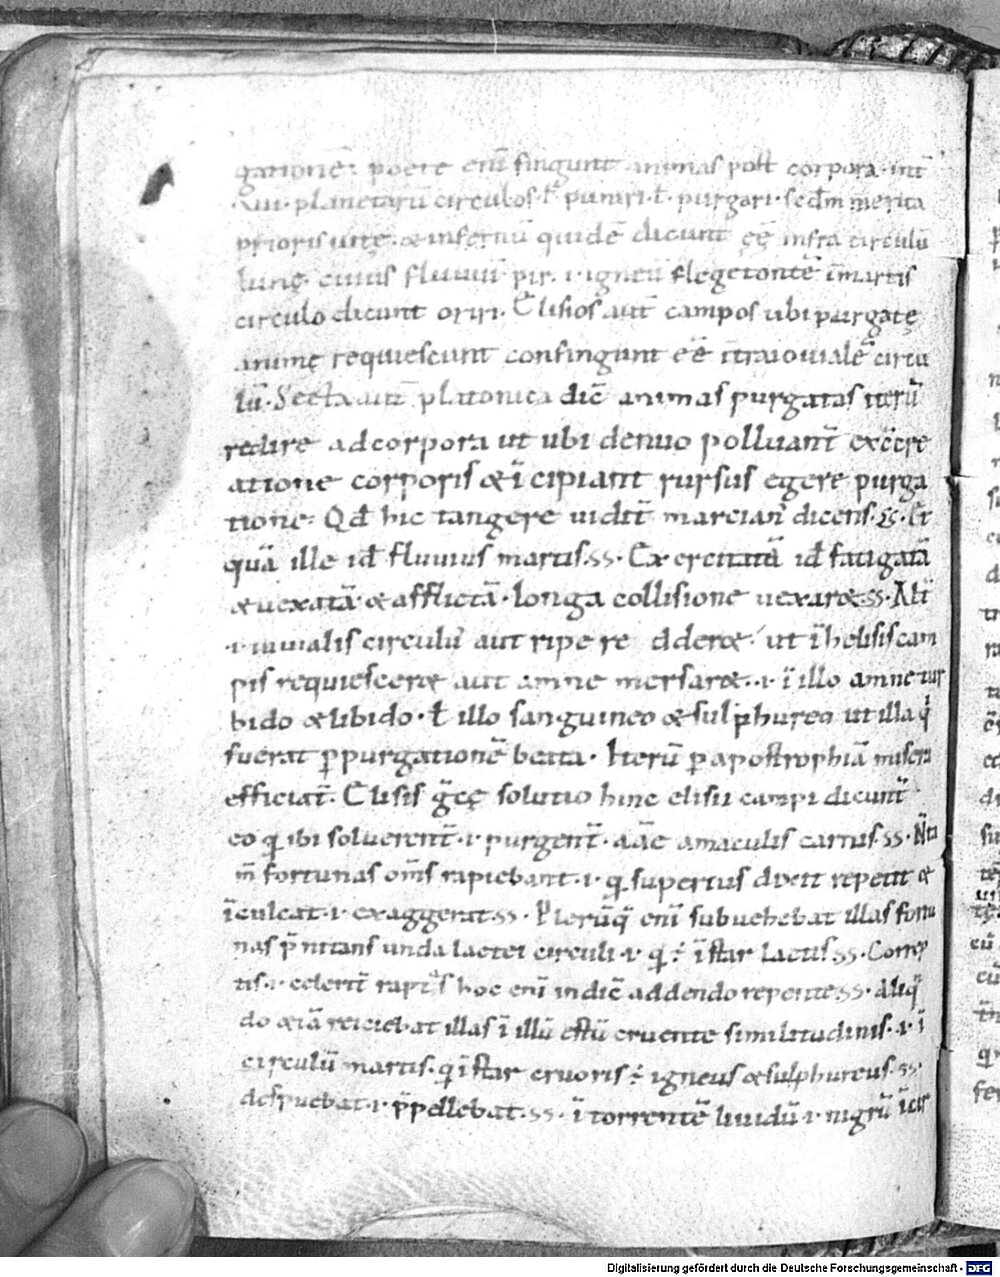 gationē: poete enī fingunt animas post corpora. int̄
.VII. planetarū circulos. ł puniri. ł. purgari. scdm̄ merita
prioris uitę. & infernū quidē dicunt ēē infra circulū
lunę. cuius fluuiū pir. i. igneū flegetontē ī martis
circulo dicunt oriri. Elisios aut̄ campos ubi purgatę
animę requiescunt confingunt eē īt̄ra iouialē circu
lū. Secta aut̄ platonica dic̄ animas purgatas iterū
redire ad corpora ut ubi denuo polluant̄ ex
atione corporis & īcipiant rursus egere purga
tione. Qd̄ hic tangere uidet̄ marcian' dicens. ss. Et
quā ille id' fluuius martis. ss. Exercitatā id' fatigatā
& uexatā. & afflictā. longa collisione uexar&. ss.
.i. iouialis circulus aut ripe re dder&. ut ī helisiis cam
pis requiescer& aut amne mersar&. .i. ī illo amne tur
bido & libido. ł illo sanguineo & sulphureo ut illa q̄
fuerat p purgationē beata. Iterū p apostrophiā misera
efficiat̄. Elisis gc̄ę solutio hinc elisii campi dicunt̄
eo q ibi soluerent̄. i. purgent̄. aīae a maculis carnis. ss.
m̄ fortunas om̄s rapiebant. i. q supertus dixit repetit &
īculcat. i. exaggerat. ss. Plerūq̄ enī subuehebat illas fortu
nas p̄nitans unda lactei circuli. i. q ē īstar lactis. ss. Correp
tis. i. celerit̄ raptis hoc enī indic̄ addendo repente. ss. Aliq̄
do &iā reiciebat illas ī illū estū cruente similitudinis. i. ī
circulū martis. q īstar cruoris ē igneus & sulphureus. ss.
despuebat. i. p̄pellebat. ss. ī torrentē liuidū. i. nigrū
Digitalisierung gefördert durch die Deutsche Forschungsgemeinschaft - DFG